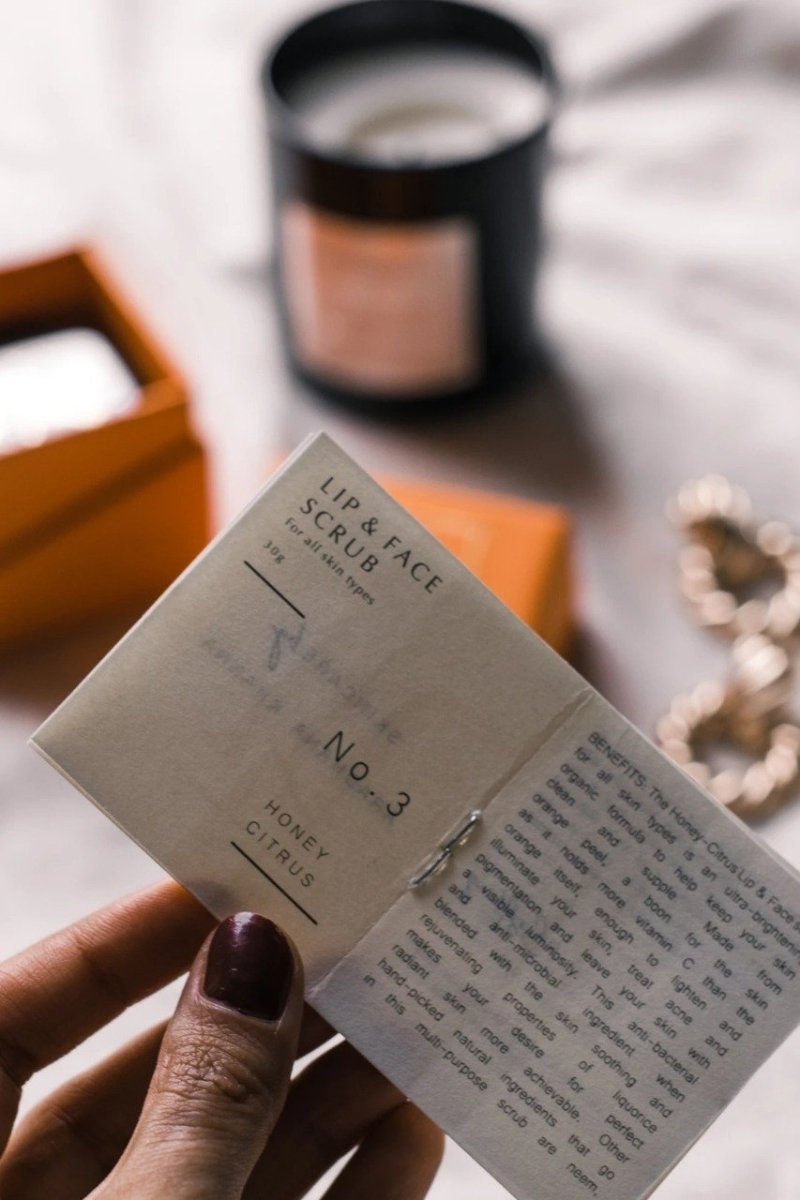 LIP & FACE
SCRUB
For all skin types
30g
No. 3
HONEY
CITRUS
BENEFITS: The Honey-Citrus Lip & Face
for all skin types is an ultra-brightening
organic formula to help keep your skin
clean and supple. Made from
orange peel, a boon for the skin
as it holds more vitamin C than the
orange itself, enough to lighten and
illuminate your skin, treat acne and
pigmentation and leave your skin with
a visible luminosity. This anti-bacterial
and anti-microbial ingredient when
blended with the skin soothing and
rejuvenating properties of liquorice
makes your desire for perfect
radiant skin more achievable. Other
hand-picked natural ingredients that go
in this multi-purpose scrub are neem,